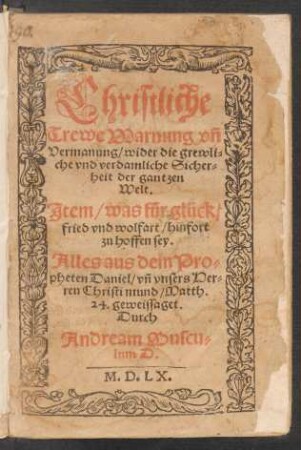 Christliche
Trewe Warnung vñ
Vermanung / wider die grewli-
che vnd verdamliche Sicher-
heit der gantzen
Welt.
Item / was für glück /
fried vnd wolfart / hinfort
zu hoffen sey.
Alles aus dem Pro-
pheten Daniel / vñ vnsers Her-
ren Christi mund / Matth.
24. geweissaget.
Durch
Andream Muscu-
lum D.
M. D. LX.